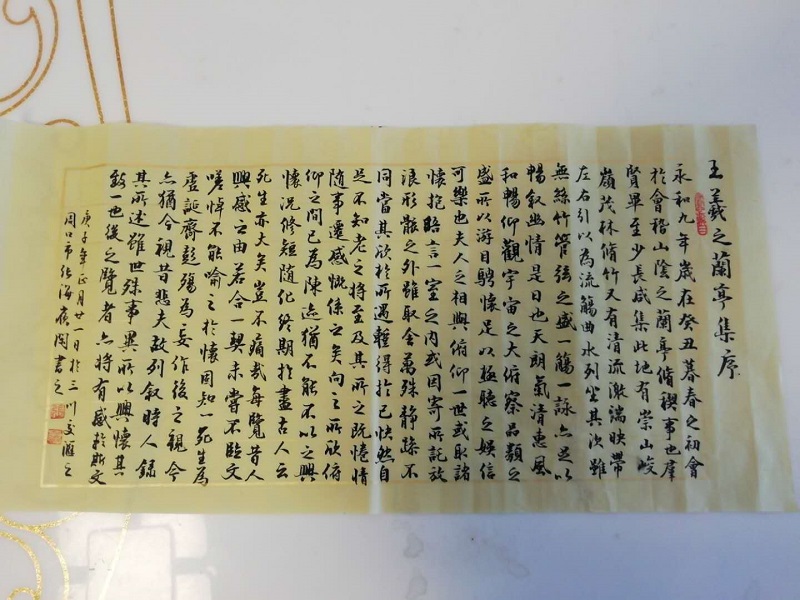 王羲之蘭亭集序
永和九年歲在癸丑暮春之初會
於會稽山陰之蘭亭脩禊事也羣
賢畢至少長咸集此地有崇山峻
嶺茂林脩竹又有清流激湍映帶
左右引以為流觴曲水列坐其次雖
無絲竹管弦之盛一觴一詠亦足以
暢叙幽情是日也天朗氣清惠風
和暢仰觀宇宙之大俯察品類之
盛所以游目騁懷足以極聽之娛信
可樂也夫人之相與俯仰一世或取諸
懷抱晤言一室之内或因寄所託放
浪形骸之外雖取舍萬殊静躁不
同當其欣於所遇暫得於己快然自
足不知老之將至及其所之既惓情
随事遷感慨係之矣向之所欣俯
仰之間已為陳迹猶不能不以之興
懷況修短随化終期於盡古人云
死生亦大矣豈不痛哉每覽昔人
興感之由若合一契未嘗不臨文
嗟悼不能喻之於懷固知一死生為
虛誕齊彭殤為妄作後之視今
亦猶今視昔悲夫故列叙時人錄
其所述雖世殊事異所以興懷其
致一也後之覽者亦將有感於斯文
庚子年正月廿一日於三川交匯之
周口市 海 閣書之